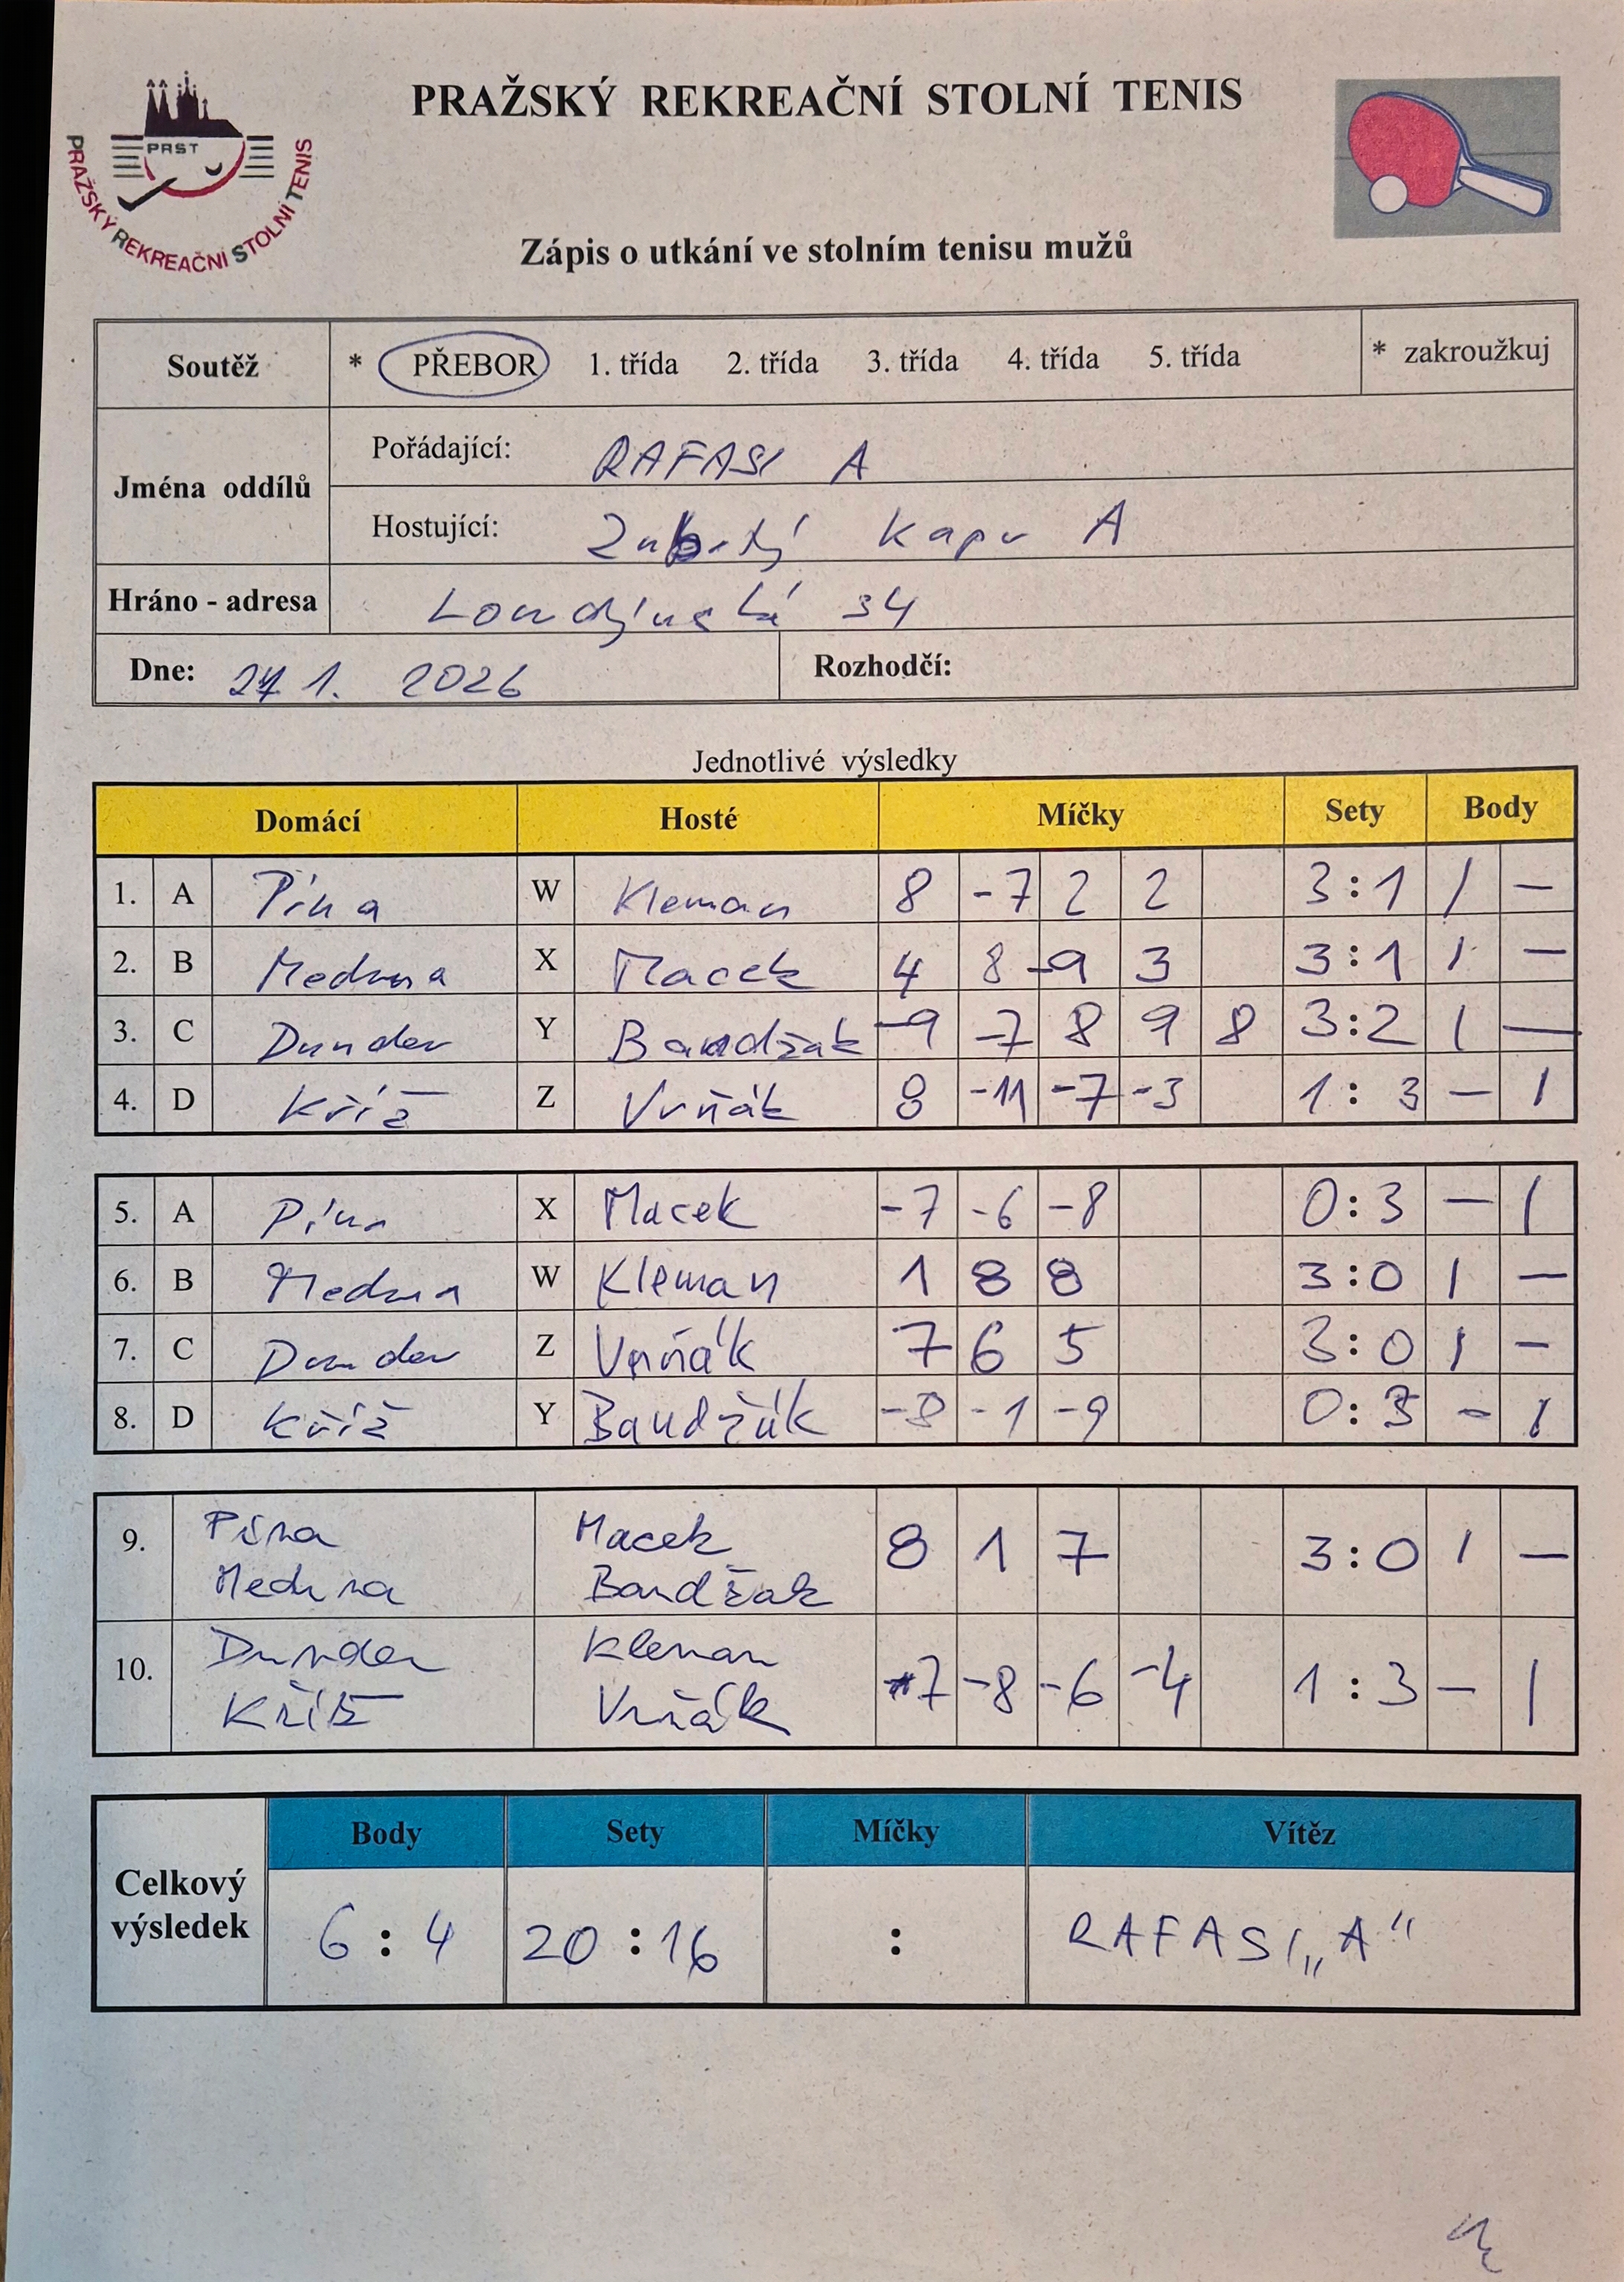 PRAŽSKÝ REKREAČNÍ STOLNÍ TENIS
PRST
PRAŽSKÝ REKREAČNÍ STOLNÍ TENIS
Zápis o utkání ve stolním tenisu mužů
Soutěž * PŘEBOR 1. třída 2. třída 3. třída 4. třída 5. třída * zakroužkuj
Jména oddílů
Pořádající: RAFASI A
Hostující: Zubatý Kapr A
Hráno - adresa Londýnská 34
Dne: 27 1. 2026 Rozhodčí:
Jednotlivé výsledky
Domácí Hosté Míčky Sety Body
1. A Pína W Kleman 8 -7 2 2 3:1 1 –
2. B Meduna X Macek 4 8 -9 3 3:1 1 –
3. C Dunder Y Bandžak -9 -7 8 9 8 3:2 1 –
4. D Kříž Z Vrňák 8 -11 -7 -3 1:3 – 1
5. A Pína X Macek -7 -6 -8 0:3 – 1
6. B Meduna W Kleman 1 8 8 3:0 1 –
7. C Dunder Z Vrňák 7 6 5 3:0 1 –
8. D Kříž Y Bandžák -8 -1 -9 0:3 – 1
9. Pína Macek 8 1 7 3:0 1 –
Meduna Bandžak
10. Dunder Kleman 7 -8 -6 -4 1:3 – 1
Kříž Vrňák
Celkový výsledek
Body Sety Míčky Vítěz
6:4 20:16 : RAFASI „A“